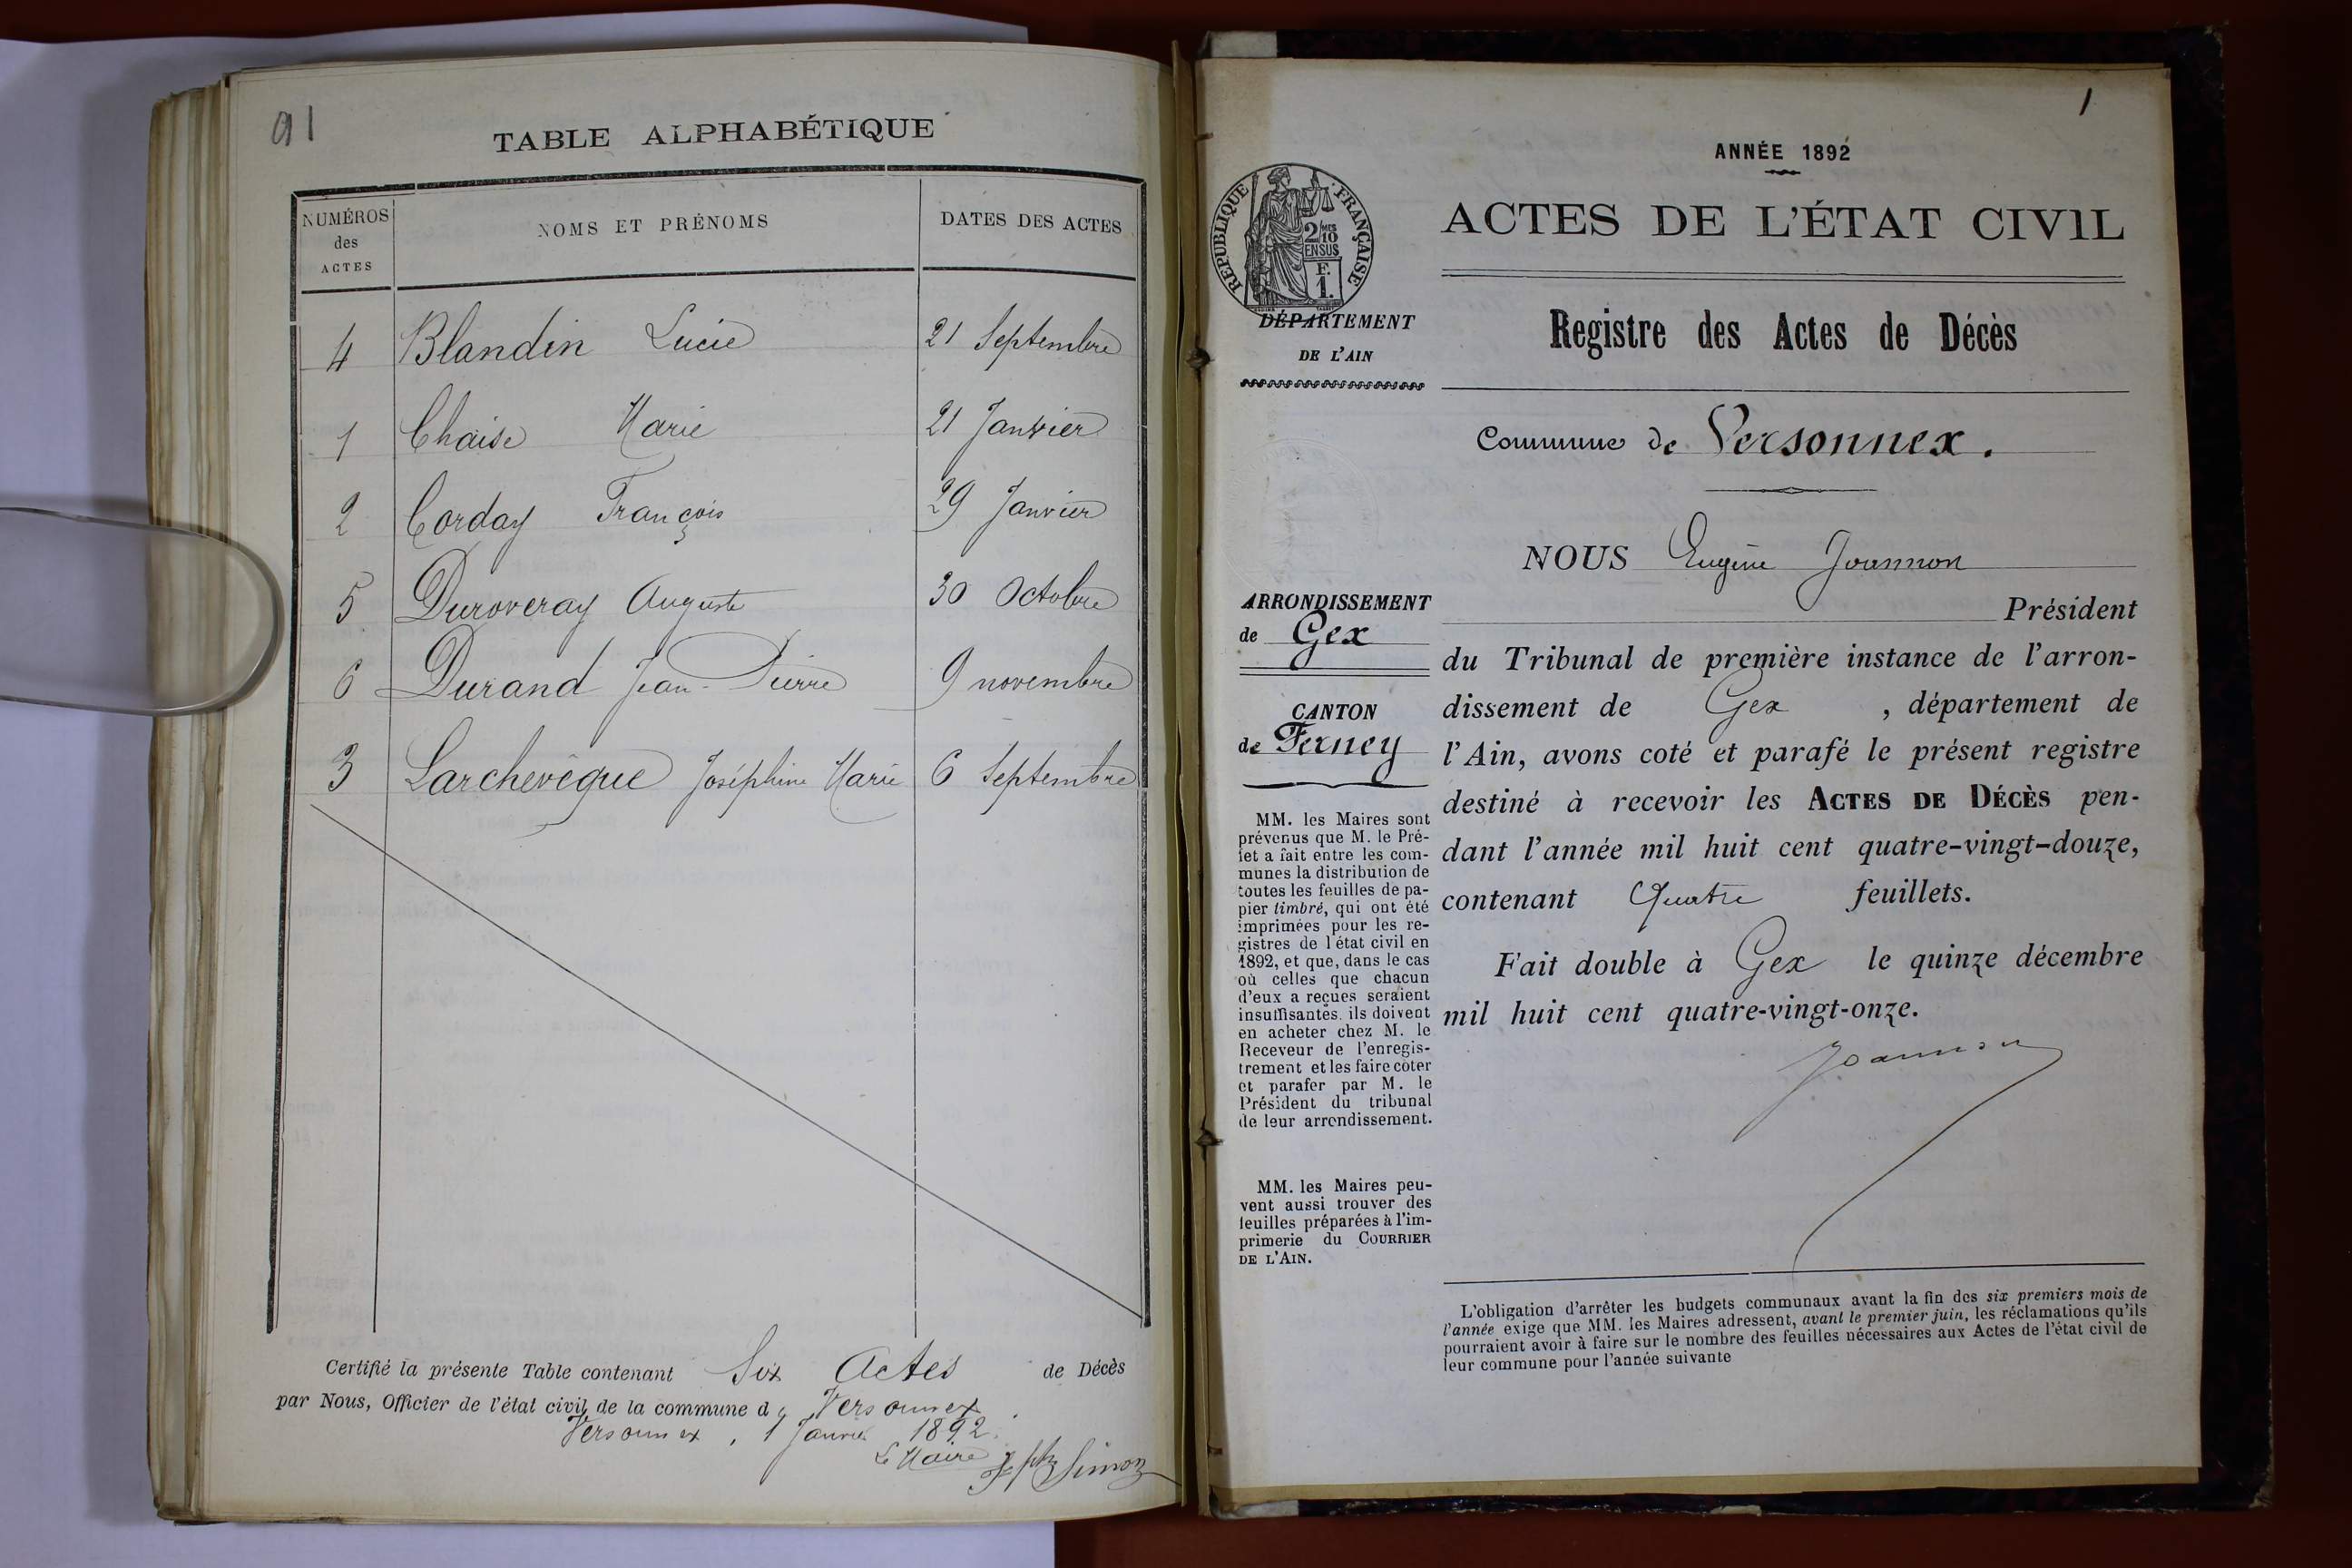 91
TABLE ALPHABÉTIQUE
NUMÉROS
des
ACTES
NOMS ET PRÉNOMS
DATES DES ACTES
4 Blandin Lucie 21 Septembre
1 Chaise Marie 21 Janvier
2 Corday François 29 Janvier
5 Duroveray Auguste 30 Octobre
6 Durand Jean-Pierre 9 novembre
3 Larchevêque Joséphine Marie 6 Septembre
Certifié la présente Table contenant Six Actes de Décès
par Nous, Officier de l'état civil de la commune de Versonnex
Versonnex, 1 Janvier 1892.
Le Maire Jph Simon
1
ANNÉE 1892
ACTES DE L'ÉTAT CIVIL
RÉPUBLIQUE FRANÇAISE
2/MES
10
EN SUS
F.
1.
DÉPARTEMENT
DE L'AIN
Registre des Actes de Décès
Commune de Versonnex.
NOUS Eugène Joannon
Président
du Tribunal de première instance de l'arron-
dissement de Gex, département de
l'Ain, avons coté et parafé le présent registre
destiné à recevoir les ACTES DE DÉCÈS pen-
dant l'année mil huit cent quatre-vingt-douze,
contenant Quatre feuillets.
Fait double à Gex le quinze décembre
mil huit cent quatre-vingt-onze.
Joannon
ARRONDISSEMENT
de Gex
CANTON
de Ferney
MM. les Maires sont
prévenus que M. le Pré-
fet a fait entre les com-
munes la distribution de
toutes les feuilles de pa-
pier timbré, qui ont été
imprimées pour les re-
gistres de l'état civil en
1892, et que, dans le cas
où celles que chacun
d'eux a reçues seraient
insuffisantes, ils doivent
en acheter chez M. le
Receveur de l'enregis-
trement et les faire coter
et parafer par M. le
Président du tribunal
de leur arrondissement.
MM. les Maires peu-
vent aussi trouver des
feuilles préparées à l'im-
primerie du COURRIER
DE L'AIN.
L'obligation d'arrêter les budgets communaux avant la fin des six premiers mois de
l'année exige que MM. les Maires adressent, avant le premier juin, les réclamations qu'ils
pourraient avoir à faire sur le nombre des feuilles nécessaires aux Actes de l'état civil de
leur commune pour l'année suivante